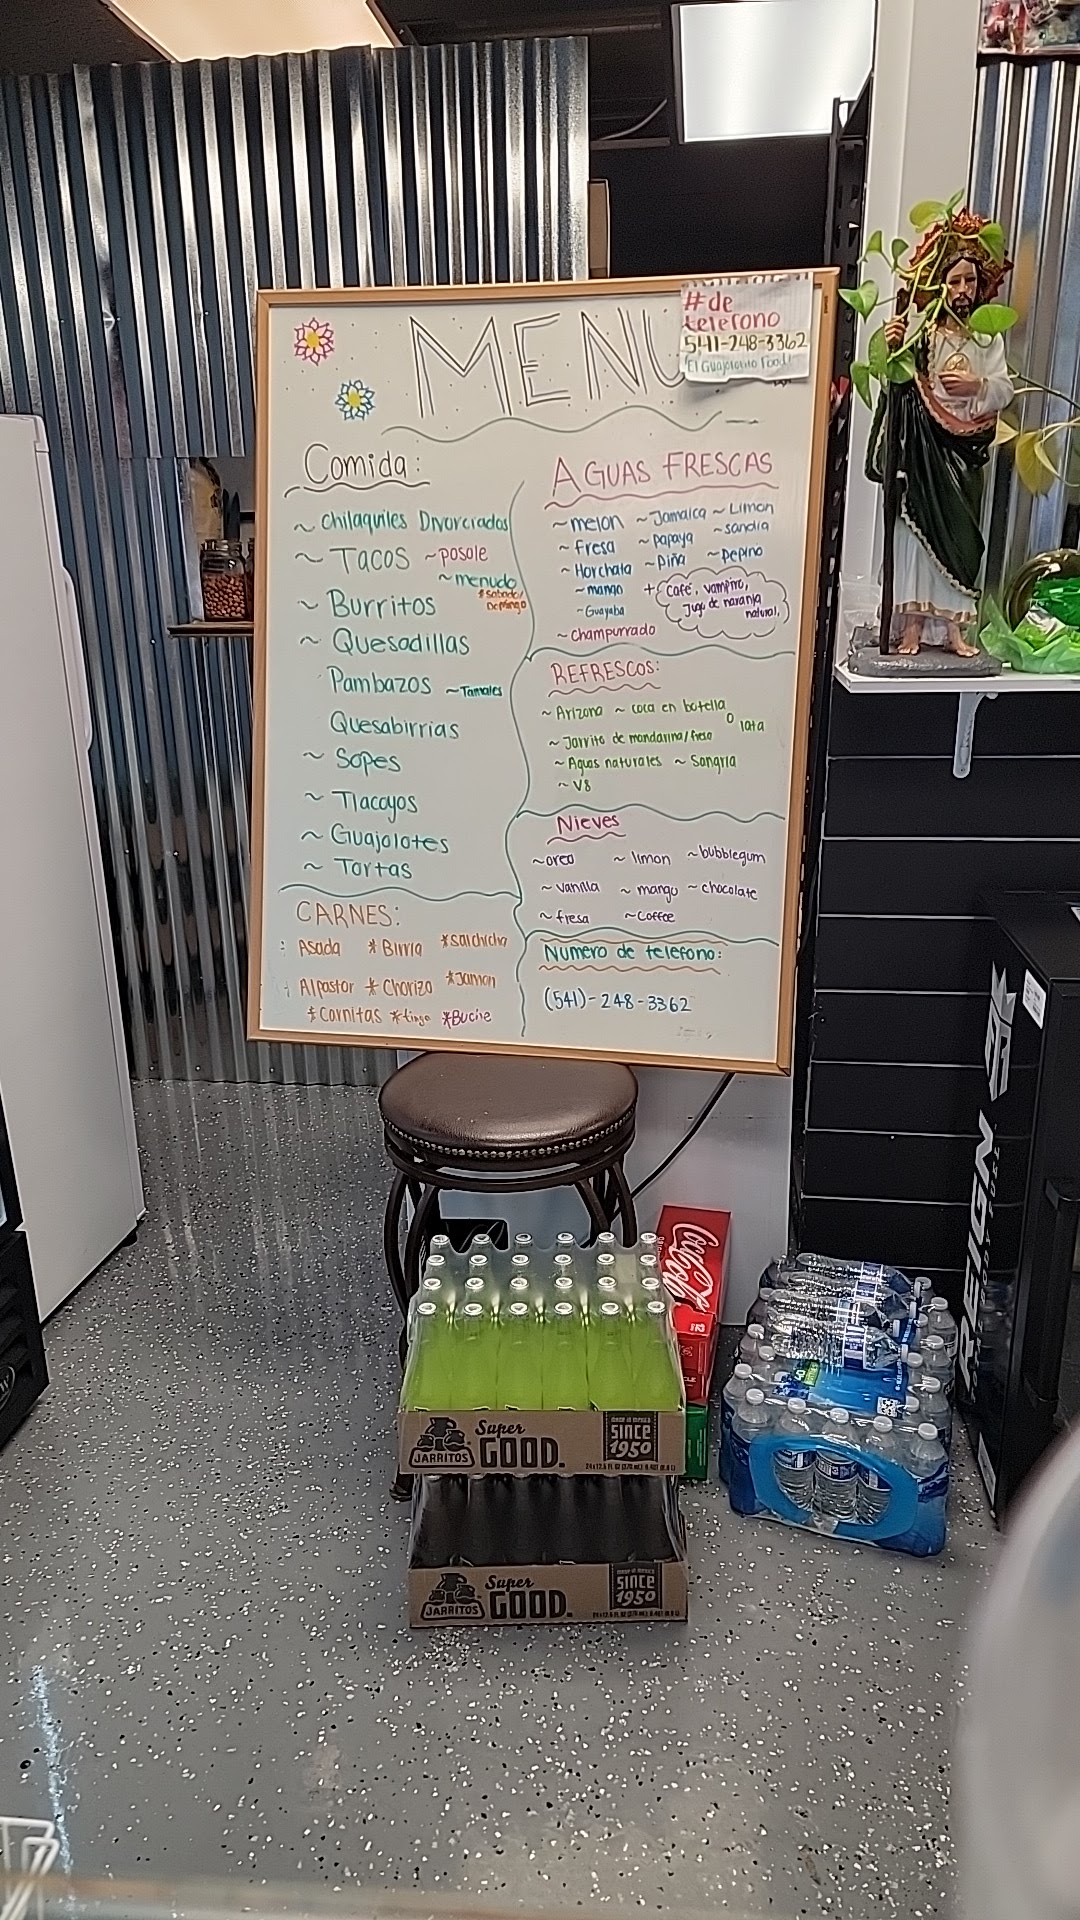 MENU
#de
telefono
541-248-3362
El Guajolotito Food!
Comida:
~ Chilaquiles Divorciados
~ Tacos ~posole
~menudo
*sabado/
Domingo
~ Burritos
~ Quesadillas
Pambazos ~Tamales
Quesabirrias
~ Sopes
~ Tlacoyos
~ Guajolotes
~ Tortas
CARNES:
Asada *Birria *salchicha
Alpastor *Chorizo *Jamon
*Cornitas *tinga *Buche
AGUAS FRESCAS
~melon ~Jamaica ~Limon
~fresa ~papaya ~sandia
~Horchata ~piña ~pepino
~mango + Café, vampiro,
~Guayaba Jugo de naranja
natural.
~champurrado
REFRESCOS:
~Arizona ~coca en botella
o lata
~Jarrito de mandarina/fresa
~Aguas naturales ~Sangria
~V8
Nieves
~oreo ~limon ~bubblegum
~vanilla ~mango ~chocolate
~fresa ~Coffee
Numero de telefono:
(541)-248-3362
Coca-Cola
REIGN
JARRITOS Super GOOD. SINCE 1950
JARRITOS Super GOOD. SINCE 1950